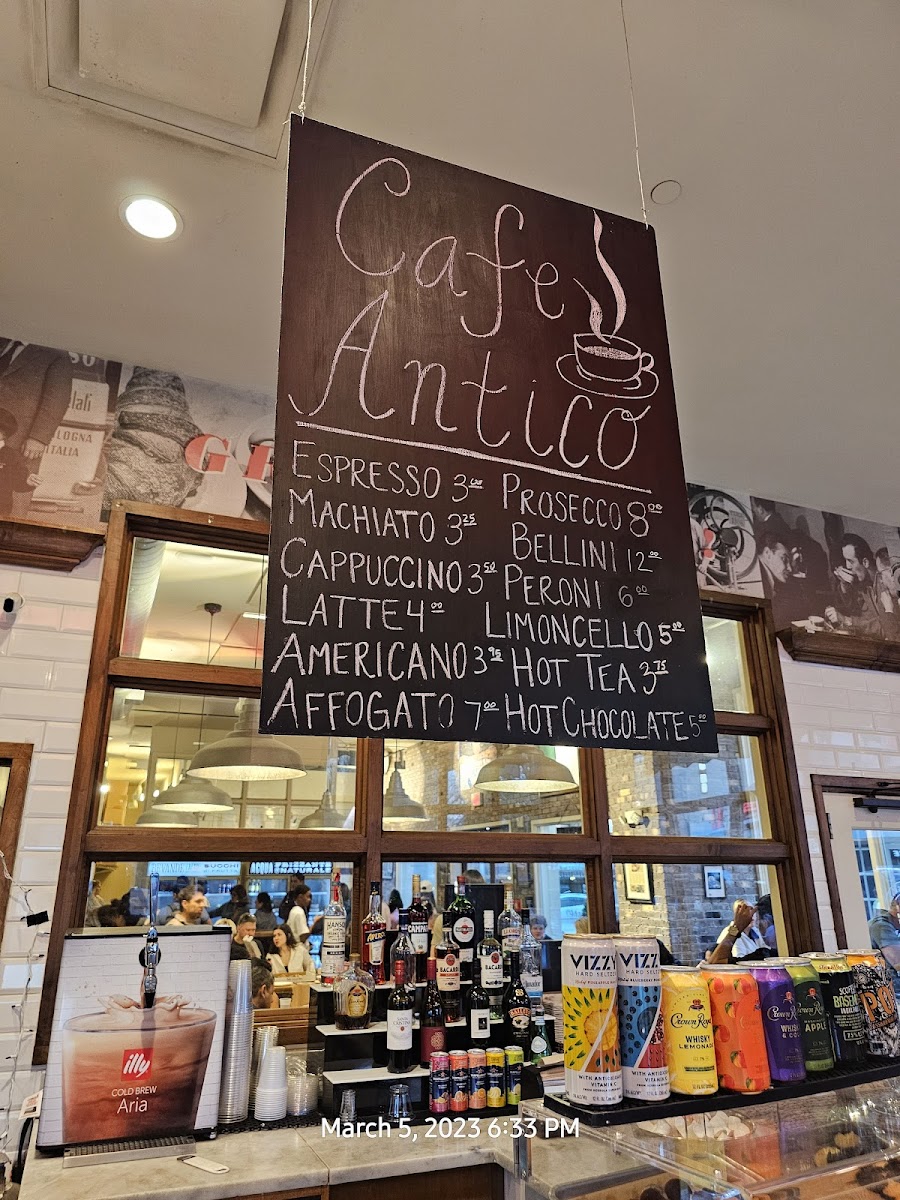 Cafe
Antico
ESPRESSO 3.00
MACHIATO 3.25
CAPPUCCINO 3.50
LATTE 4.00
AMERICANO 3.95
AFFOGATO 7.00
PROSECCO 8.00
BELLINI 12.00
PERONI 6.00
LIMONCELLO 5.00
HOT TEA 3.75
HOT CHOCOLATE 5.00
LOGNA
ITALIA
GE
ACQUA
NATURALE
illy
COLD BREW
Aria
APEROL
BACARDI
BACARDI
VIZZY
HARD SELTZER
WITH ANTIOXIDANT
VITAMIN C
VIZZ
HARD SELTZE
Crown Royal
WHISKY
LEMONADE
WHISKY
& CO
Crown Roy
APPLE
March 5, 2023 6:33 PM